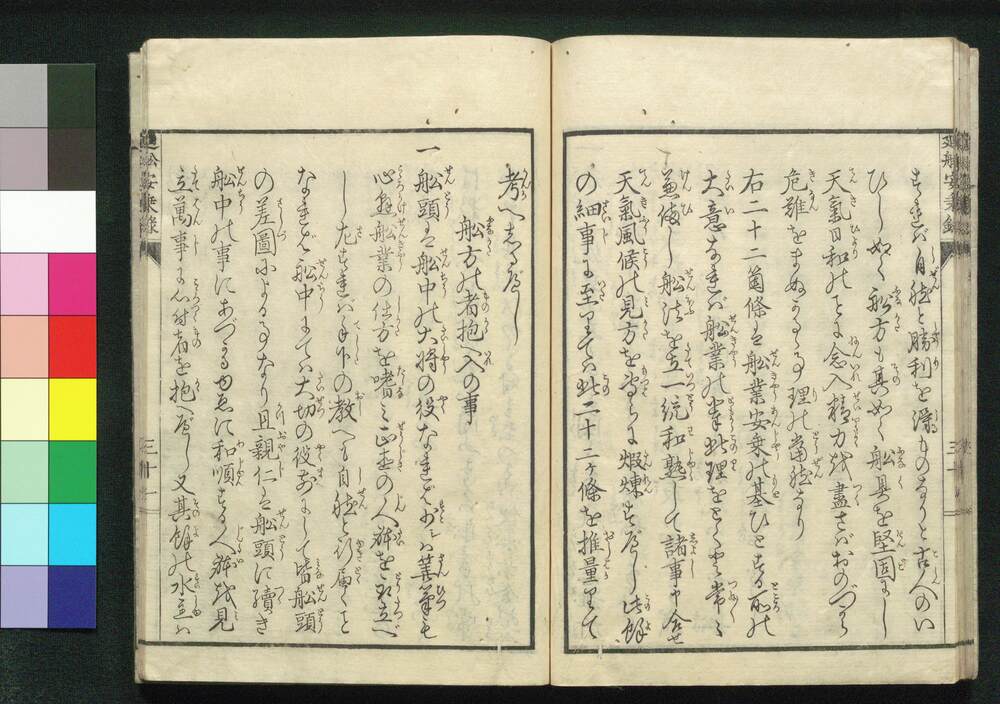 すれば自然と勝利を得ものなりと古人のい
ひしかく船方も其如く船具を堅固にし
天氣日和のことに念入精力を盡さばおのづから
危難をまぬかるゝ理の當然なり
右二十二箇條は船業安乗の基ひとする所の
大意なれば船業の輩此理をとく〻常々
兼備し船法を立一統和熟して諸事申合せ
天氣風候の見方を専らに煆煉すべし此餘
の細事に至りては此二十二ヶ條を推量りて
考へしるべし
船方の者抱入の事
一 船頭は船中の大将の役なれば少しは筆筭も
心懸船業の仕方を嗜み正直の人躰を取立べ
し左すれば手下の教へも自然と行届くと
なれど船中にては大切の役前にして皆船頭
の差圖による事なり且親仁は船頭に續き
船中の事にあづかるゆゑに和順なる人躰を見
立萬事に心付者を抱べし又其餘の水主は
廻舩安乗録
三十
廻舩安乗録
三十一